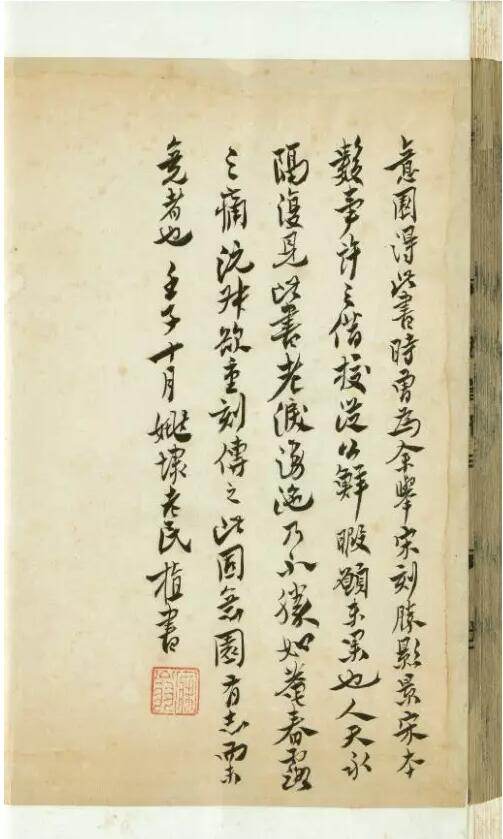 意園得此書時曾為余舉宋刻勝影景宋本
數事許之借校從公鮮暇願未果也人天永
隔復見此書老淚滂沱乃不勝如菴春露
之痛沅叔欲重刻傳之此固意園有志而未
竟者也 壬子十月姚埭老民植書